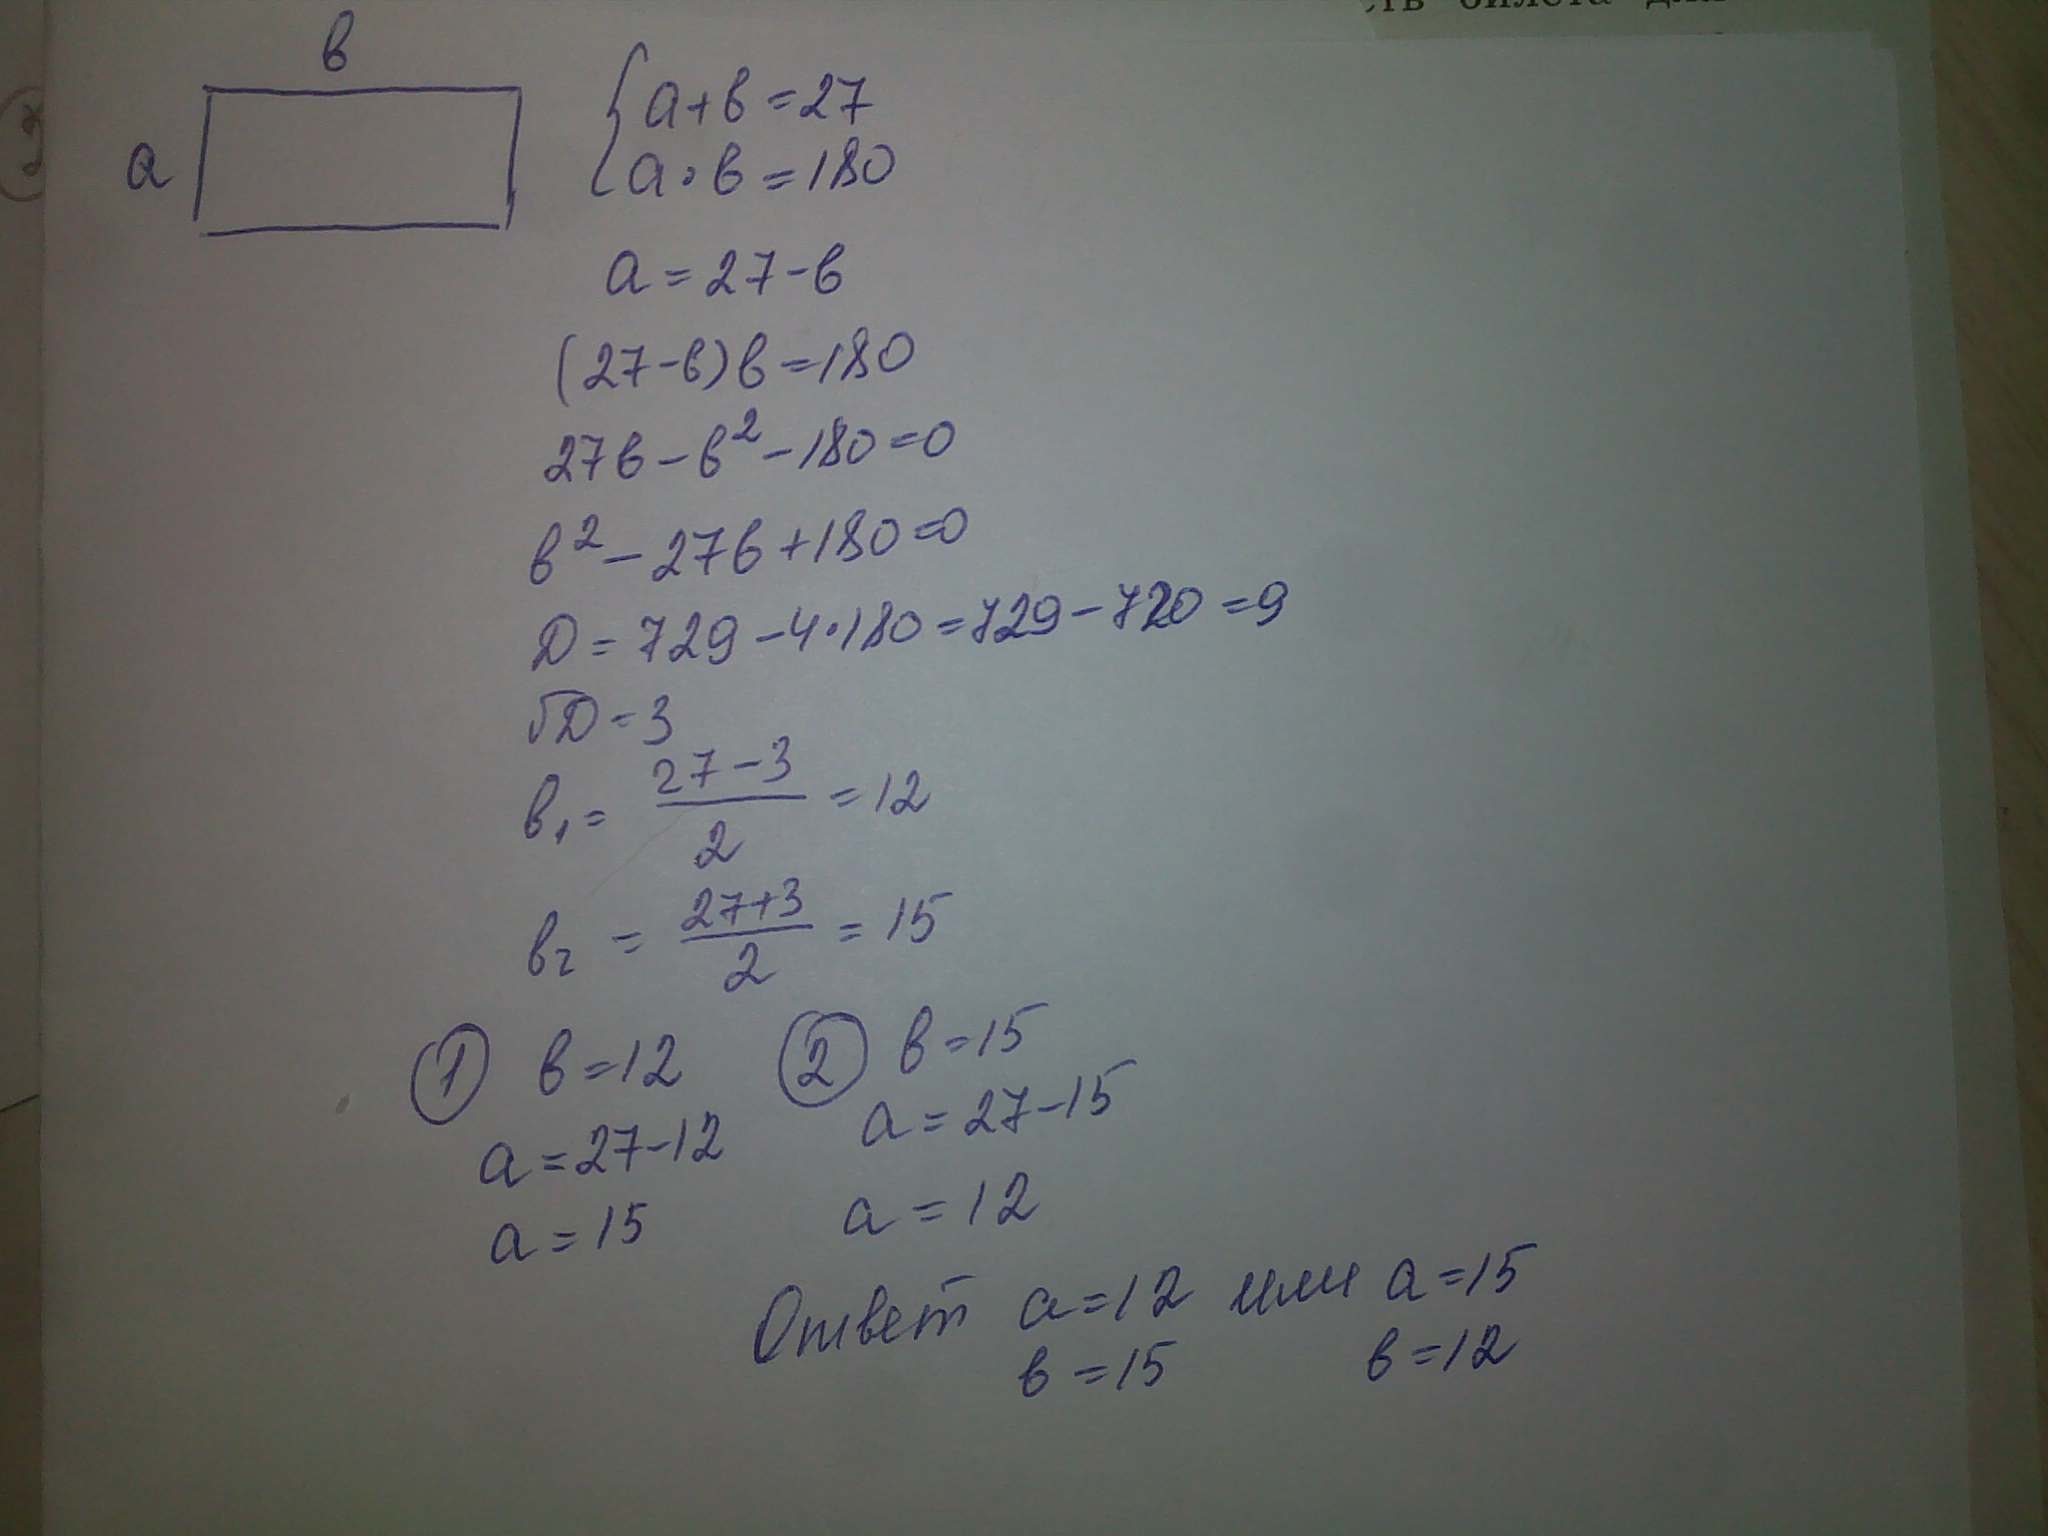 билета
в
a
a+в=27
a·в=180
a=27-в
(27-в)в=180
27в-в²-180=0
в²-27в+180=0
D=729-4·180=729-720=9
√D=3
в₁= (27-3)/2 =12
в₂ = (27+3)/2 = 15
1 в=12 2 в=15
a=27-12 a=27-15
a=15 a=12
Ответ a=12 или a=15
в=15 в=12